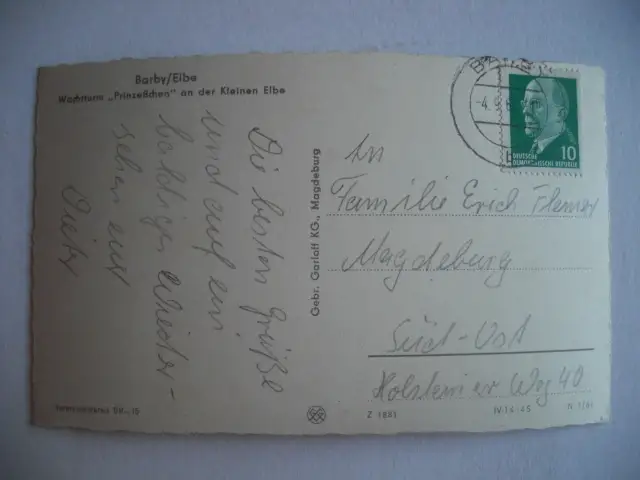 Barby/Elbe
Wachtturm „Prinzeßchen" an der Kleinen Elbe
Die besten Grüße
und auf ein
baldiges Wieder-
sehen
Gebr. Garloff KG., Magdeburg
An
Familie Erich
Magdeburg
Süd-Ost
Weg 40
DEUTSCHE
DEMOKRATISCHE REPUBLIK
10
Z 1883
IV-14-45